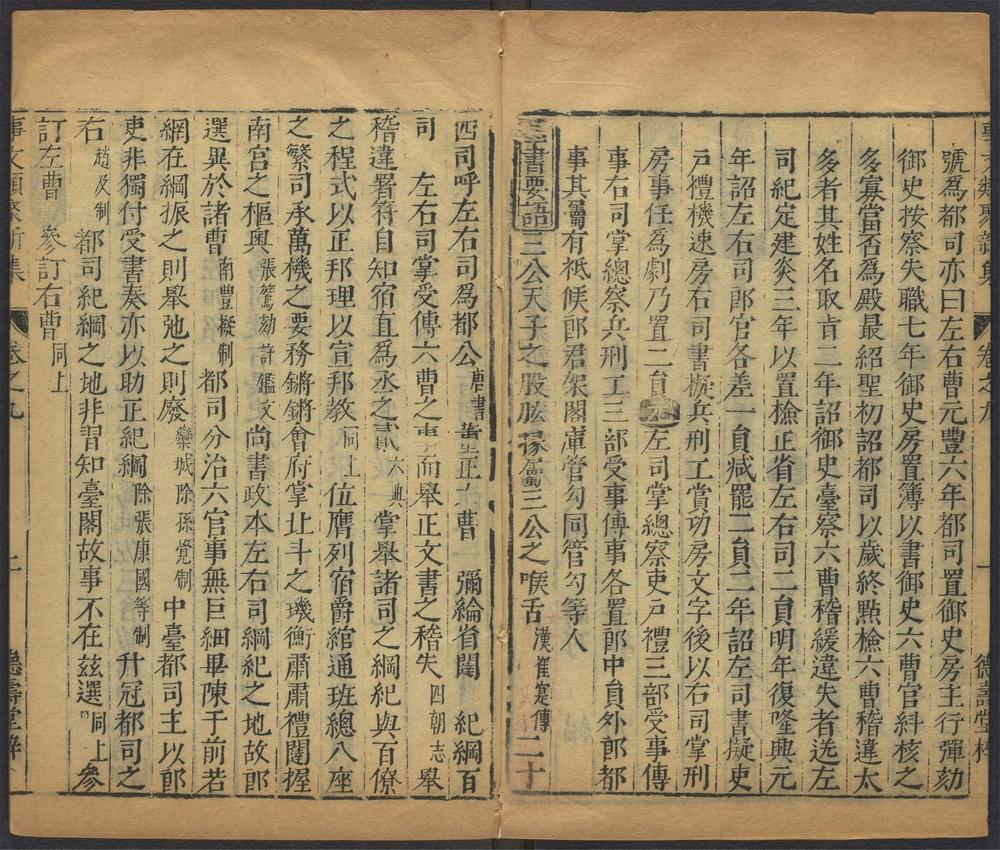 號為都司亦曰左右曹元豐六年都司置御史房主行彈劾
御史按察失職七年御史房置簿以書御史六曹官糾核之
多寡當否爲殿最紹聖初詔都司以歲終點檢六曹稽違太
多者其姓名取旨二年詔御史臺察六曹稽緩違失者选左
司紀定建炎三年以置檢正省左右司二員明年復隆興元
年詔左右司郎官各差一員減罷二員三年詔左司書擬吏
戸禮機速房右司書擬兵刑工賞功房文字後以右司掌刑
房事任爲劇乃置二員 左司掌總察吏戸禮三部受事傳
事右司掌總察兵刑工三部受事傳事各置郎中員外郎都
事其屬有祗候郎君架閣庫管勾同管勾等人
書要語 三公天子之股肱掾屬三公之喉舌 漢崔寔傳 二十
四司呼左右司爲都公 唐書 董正六曹 彌綸省闥 紀綱百
司 左右司掌受傳六曹之事而舉正文書之稽失 四朝志 舉
稽違署符自知宿直爲丞之貳 六典 掌舉諸司之綱紀與百僚
之程式以正邦理以宣邦教 同上 位膺列宿爵綰通班總八座
之繁司承萬機之要務鏘鏘會府掌北斗之璣衡肅肅禮闈握
南宮之樞奥 張鷟劾許鑑文 尚書政本左右司綱紀之地故郎
選異於諸曹 南豐擬制 都司分治六官事無巨細畢陳于前若
網在綱振之則舉弛之則廢 欒城除孫覺制 中臺都司主以郎
吏非獨付受書奏亦以助正紀綱 除張康國等制 升冠都司之
右 趙及制 都司紀綱之地非習知臺閣故事不在兹選 同上 參
訂左曹 參訂右曹 同上
卷之九 一 德壽堂梓
事文類聚新集 卷之九 二 德壽堂梓